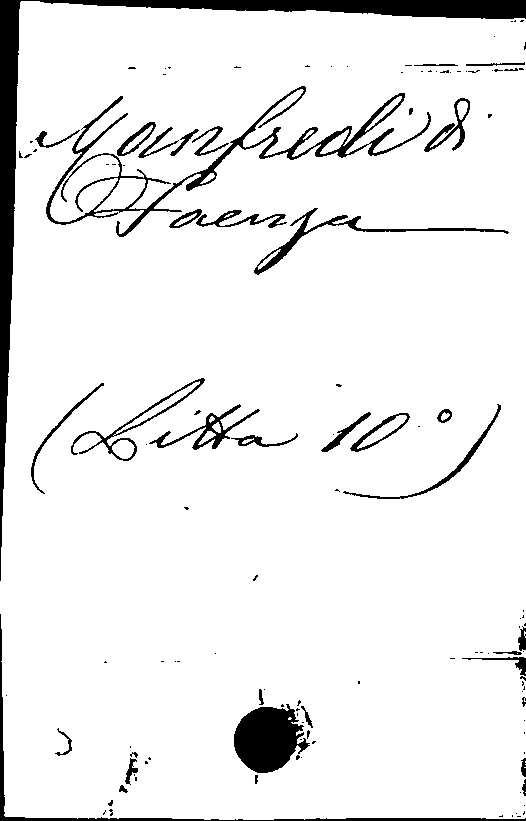 Manfredi di
Faenza
(Litta 10°)